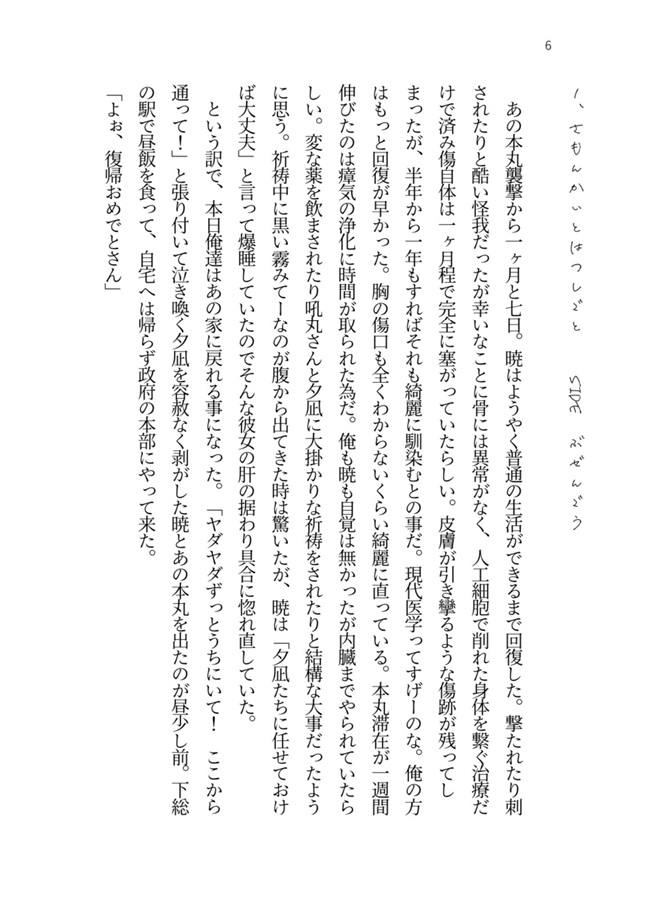 6
1、さもんかいとはつしごと　SIDE　ぶぜんごう
あの本丸襲撃から一ヶ月と七日。暁はようやく普通の生活ができるまで回復した。撃たれたり刺
されたりと酷い怪我だったが幸いなことに骨には異常がなく、人工細胞で削れた身体を繋ぐ治療だ
けで済み傷自体は一ヶ月程で完全に塞がっていたらしい。皮膚が引き攣るような傷跡が残ってし
まったが、半年から一年もすればそれも綺麗に馴染むとの事だ。現代医学ってすげーのな。俺の方
はもっと回復が早かった。胸の傷口も全くわからないくらい綺麗に直っている。本丸滞在が一週間
伸びたのは瘴気の浄化に時間が取られた為だ。俺も暁も自覚は無かったが内臓までやられていたら
しい。変な薬を飲まされたり吼丸さんと夕凪に大掛かりな祈祷をされたりと結構な大事だったよう
に思う。祈祷中に黒い霧みてーなのが腹から出てきた時は驚いたが、暁は「夕凪たちに任せておけ
ば大丈夫」と言って爆睡していたのでそんな彼女の肝の据わり具合に惚れ直していた。
という訳で、本日俺達はあの家に戻れる事になった。「ヤダヤダずっとうちにいて！　ここから
通って！」と張り付いて泣き喚く夕凪を容赦なく剥がした暁とあの本丸を出たのが昼少し前。下総
の駅で昼飯を食って、自宅へは帰らず政府の本部にやって来た。
「よぉ、復帰おめでとさん」